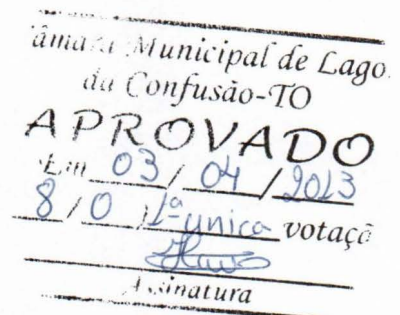 âmara Municipal de Lago
da Confusão-TO
APROVADO
Em 03 / 04 / 2013
8 / 0 1ª unica votaçã
Assinatura